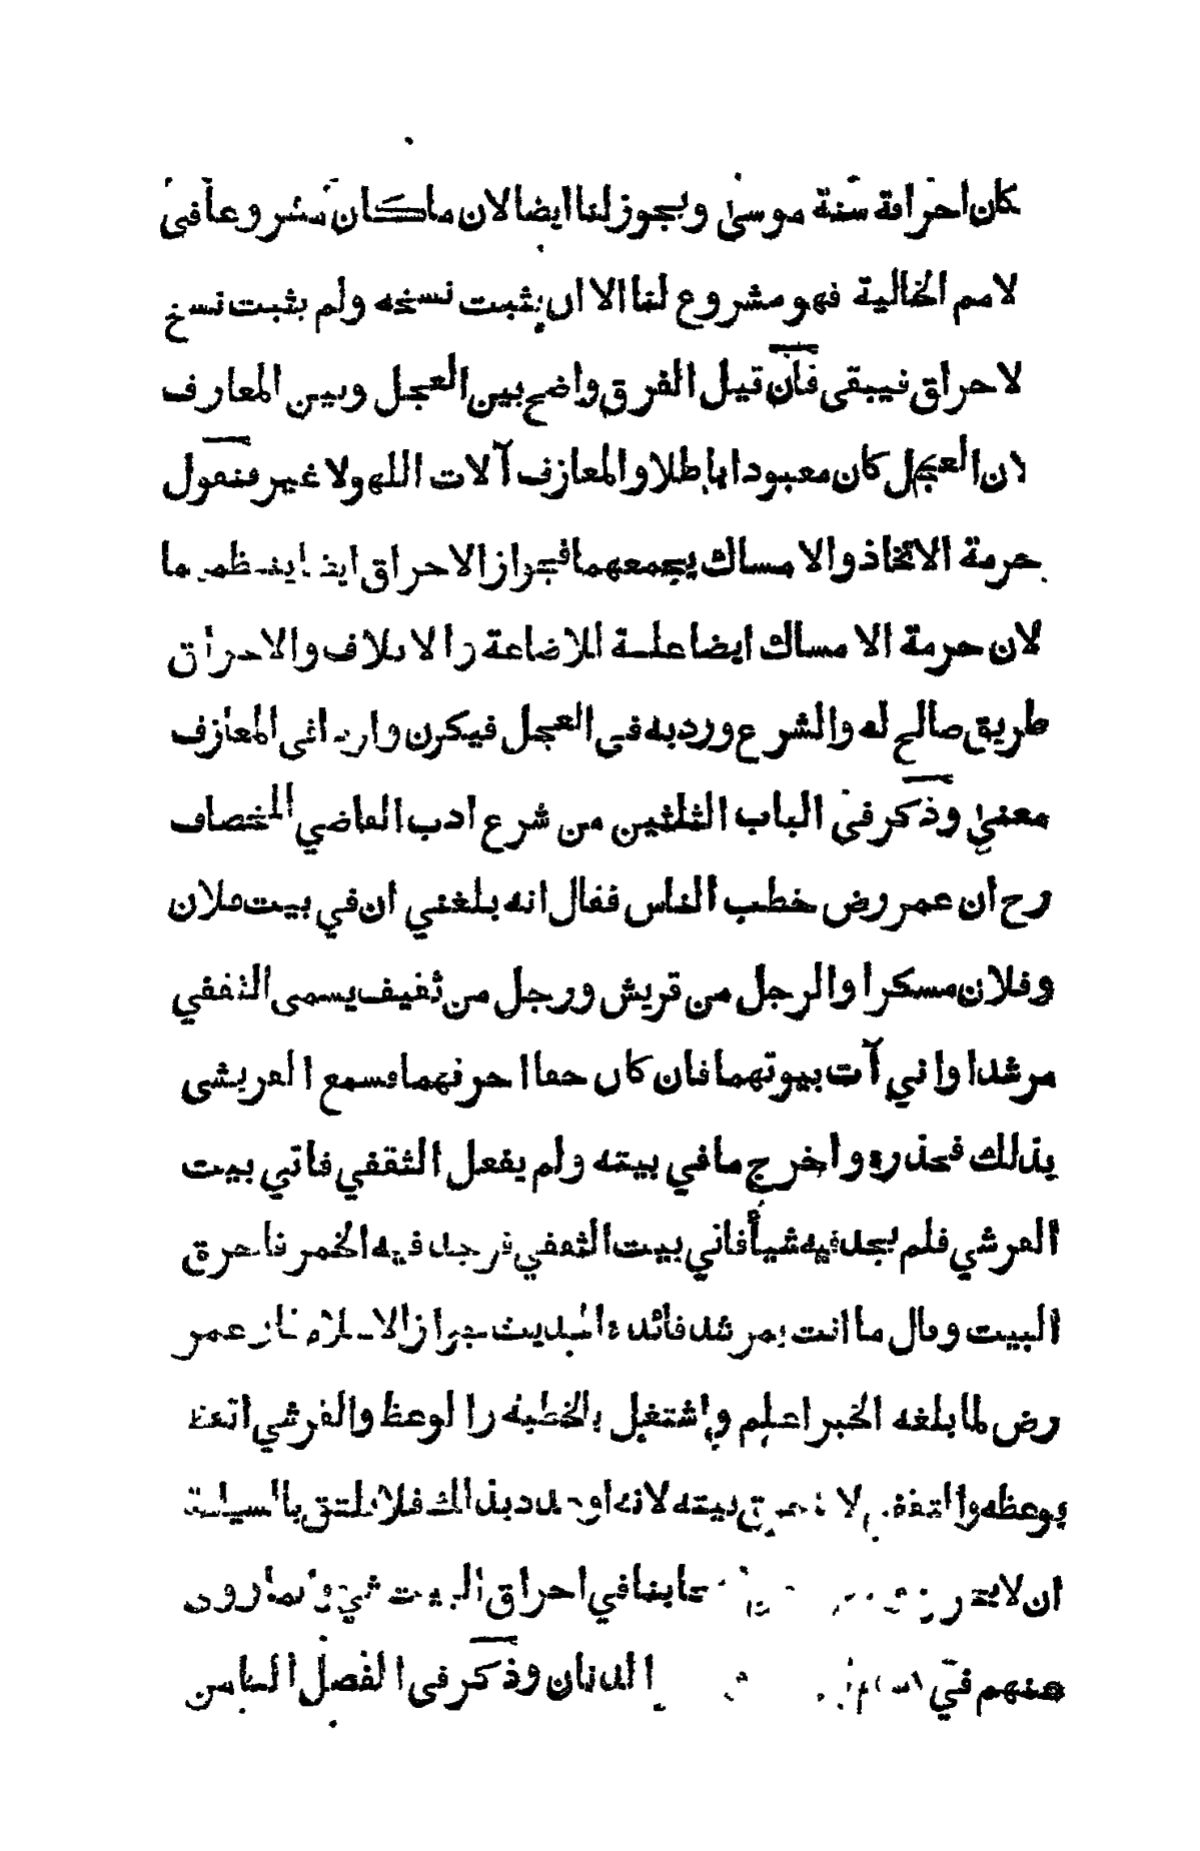 كان احراقة سنة موسى ويجوز لنا ايضا لان ما كان مشروعا في
لامم الخالية فهو مشروع لنا الا ان يثبت نسخه ولم يثبت نسخ
لاحراق فيبقى فان قيل الفرق واضح بين العجل وبين المعارف
لان العجل كان معبودا باطلا والمعازف آلات اللهو لا غير فنقول
حرمة الاتخاذ والامساك يجمعهما فجواز الاحراق ايضا ينظمهما
لان حرمة الامساك ايضا علـة للاضاعة والاتلاف والاحراق
طريق صالح له والشرع ورد به في العجل فيكون واردا في المعازف
معنى وذكر في الباب الثلثين من شرع ادب القاضي للخصاف
رح ان عمر رض خطب الناس فقال انه بلغني ان في بيت فلان
وفلان مسكرا والرجل من قريش ورجل من ثقيف يسمى الثقفي
مرشدا واني آت بيوتهما فان كان حقا احرقهما فسمع القريشى
بذلك فحذره واخرج ما في بيته ولم يفعل الثقفي فاتى بيت
القرشي فلم يجد فيه شيأ فاتى بيت الثقفي فوجد فيه الخمر فاحرق
البيت وقال ما انت بمرشد فائدة الحديث جواز الاعلام فان عمر
رض لما بلغه الخبر اعلم واشتغل بالخطبة والوعظ والقرشي اتعظ
بوعظه والثقفي لا بيته لانه اوعد بذلك فلا يلتق بالسياسة
ان لا في احراق البيت شيء وانما روى
منهم في الدنان وذكر في الفصل السادس